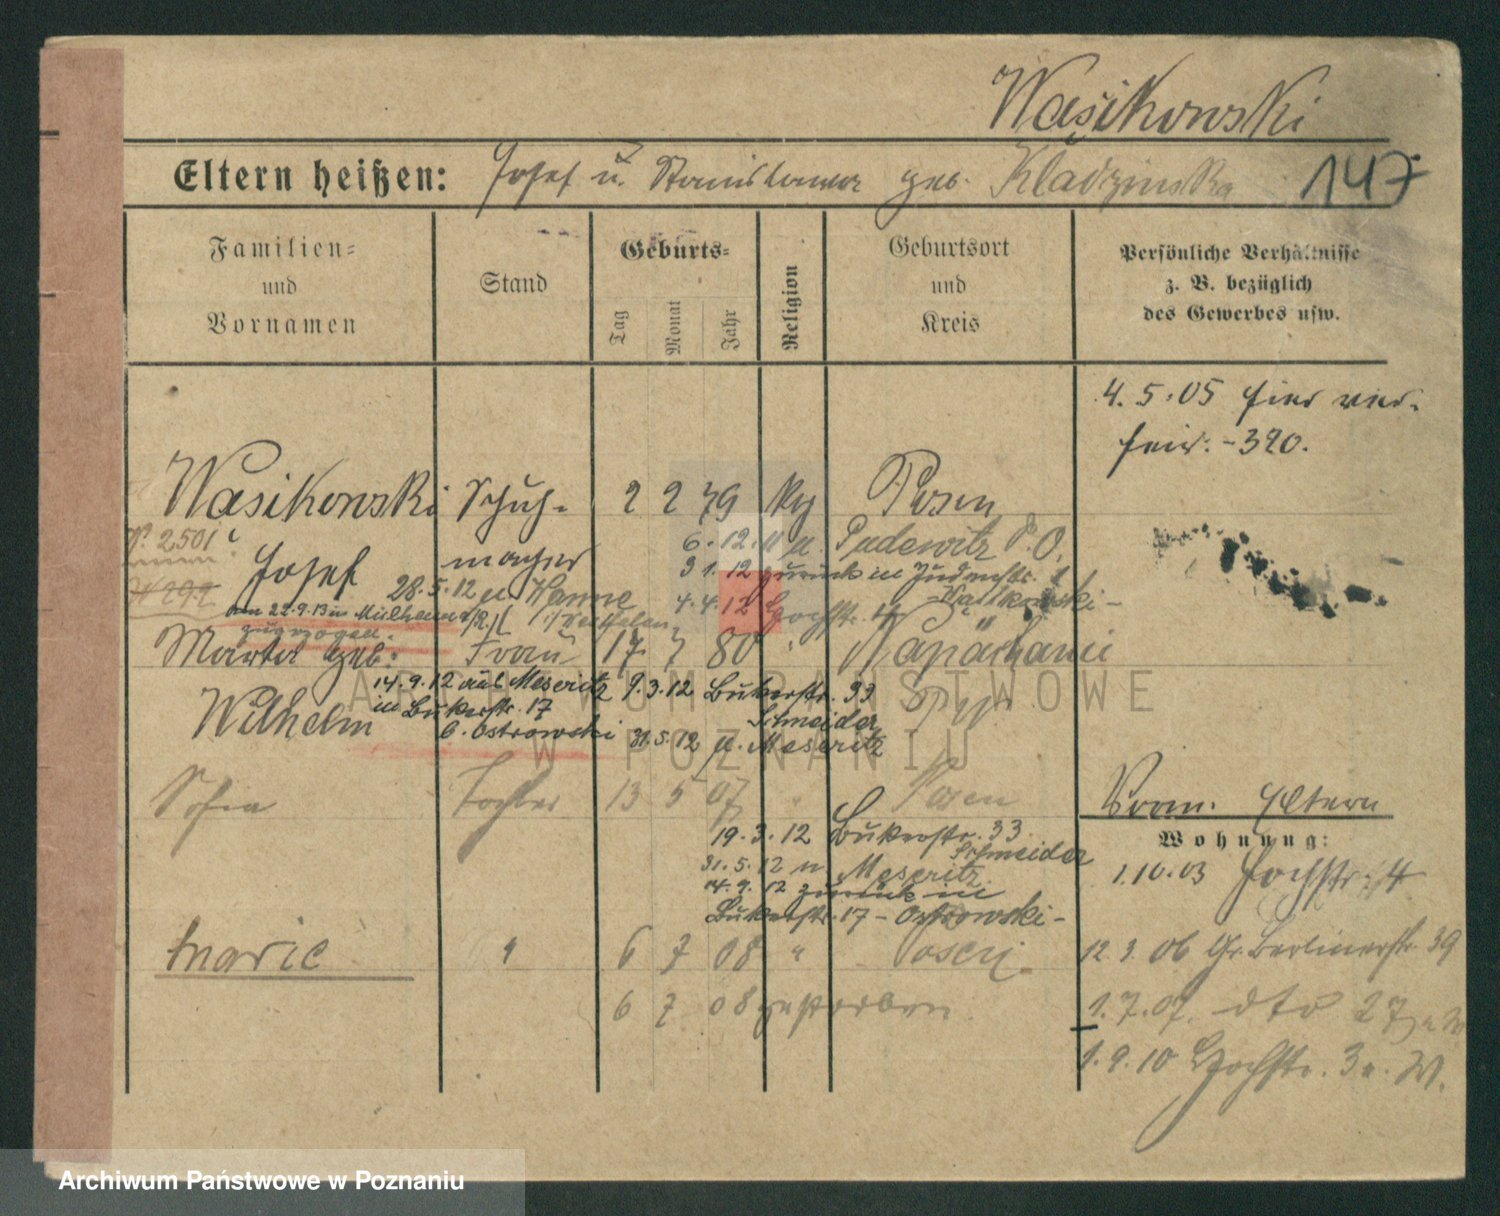 Wasikowski
Eltern heißen: Josef u. Stanislawa geb. Kladzinska 147
Familien= und Vornamen
Stand
Geburts=
Tag Monat Jahr
Religion
Geburtsort und Kreis
Persönliche Verhältnisse z. B. bezüglich des Gewerbes usw.
4. 5. 05 hier
-390.
Wasikowski Schuh- 2 2 79 Posen
2501
Josef macher
6. 12. 11 n. Pudewitz P. O.
3 1. 12 zurück in Judenstr.
28. 5. 12 n. Hamne
4. 4. 12 Hochstr.
am 22.9.13 in Mülheim /R.
zugezogen.
Marta geb. Frau 17 7 80
14. 9. 12 aus Meseritz 9. 3. 12 Bukerstr. 33
in Bukerstr. 17 Schneider
Wilhelm b. Ostrowski 31. 5. 12 n. Meseritz
Sofia Tochter 13 5 07 " Posen
Vom. Eltern
19. 3. 12 Bukerstr. 33
Schneider
Wohnung:
31. 5. 12 n Meseritz
1. 10. 03 Hochstr. 4
14. 9. 12 zurück in
Bukerstr. 17 - Ostrowski -
Marie " 6 7 08 " Posen
12. 3. 06 Gr. Berlinerstr. 39
6 7 08 gestorben.
1. 7. 07. dto 27
1. 9. 10 Hochstr. 3 n. W.
ARCHIWUM PAŃSTWOWE
W POZNANIU
Archiwum Państwowe w Poznaniu